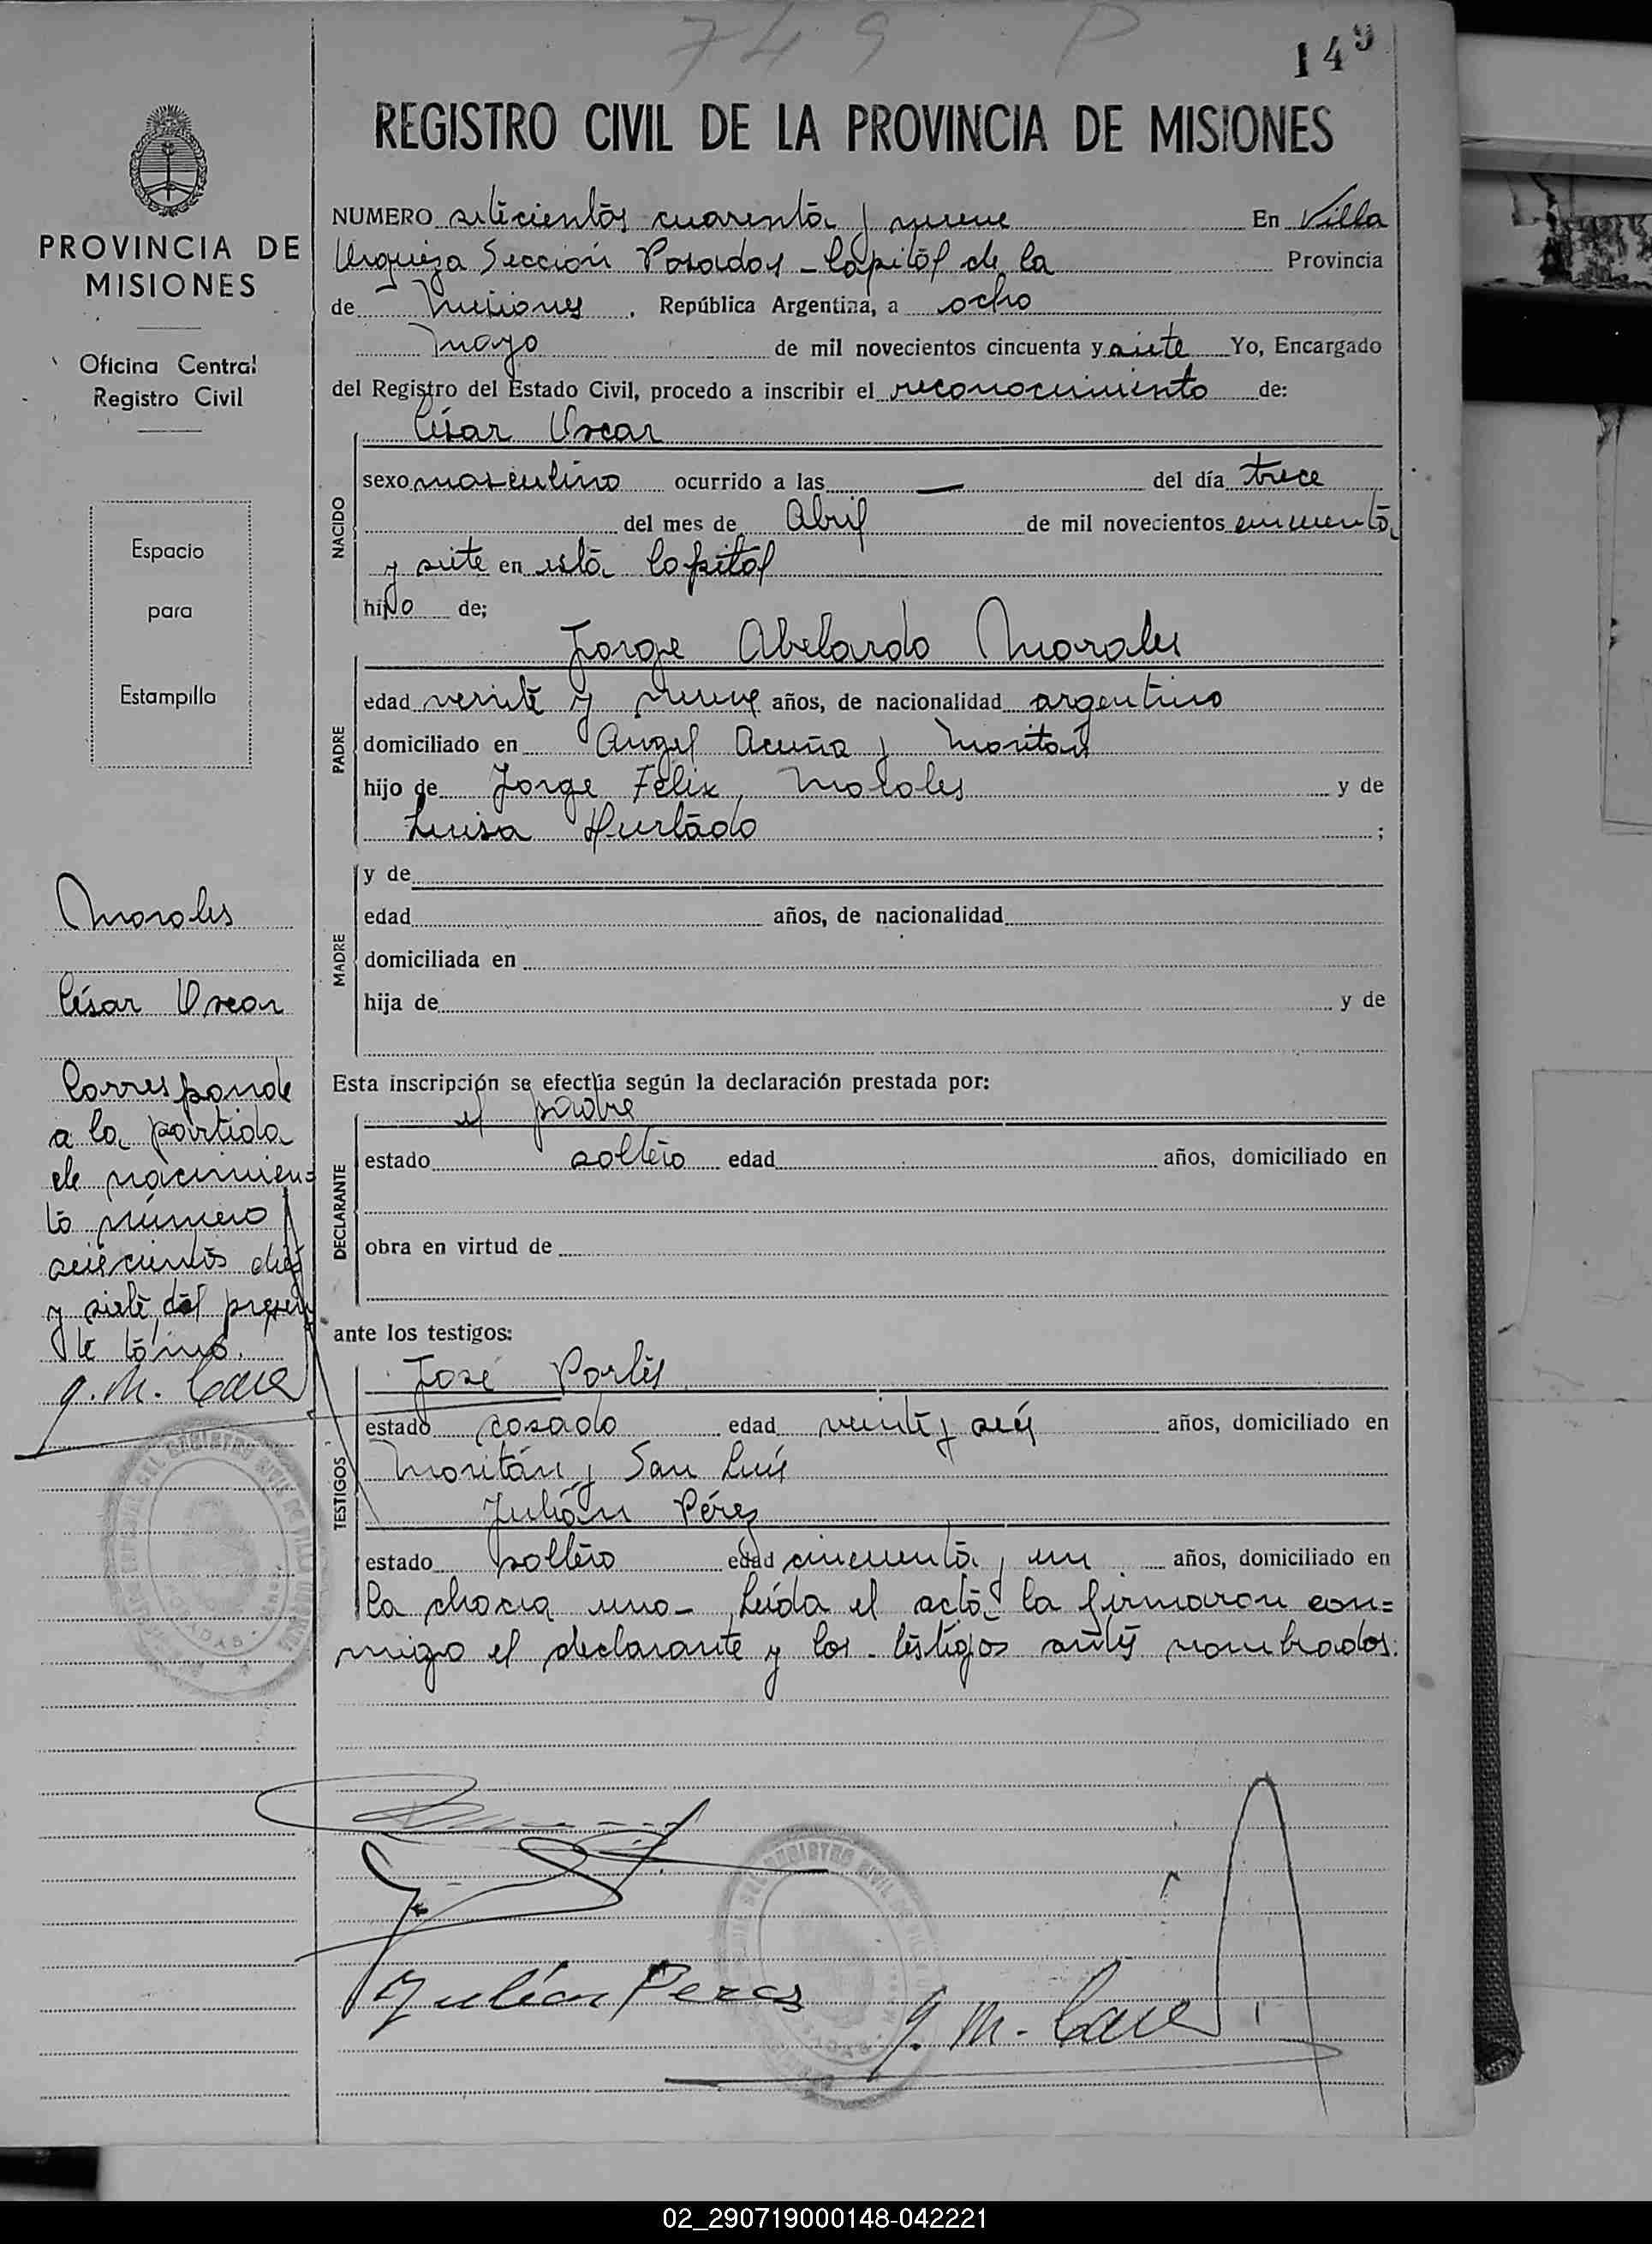 749 P
149
REGISTRO CIVIL DE LA PROVINCIA DE MISIONES
PROVINCIA DE
MISIONES
Oficina Central
Registro Civil
Espacio
para
Estampilla
Morales
César Oscar
Corresponde
a la partida
de nacimien=
to número
seiscientos diez
y siete del presen
te tómo.
NUMERO setecientos cuarenta y nueve En Villa
Urquiza Sección Posadas - Capital de la Provincia
de Misiones. República Argentina, a ocho
Mayo de mil novecientos cincuenta y siete Yo, Encargado
del Registro del Estado Civil, procedo a inscribir el reconocimiento de:
NACIDO
César Oscar
sexo masculino ocurrido a las — del día trece
del mes de Abril de mil novecientos cincuenta
y siete en esta Capital
hijo de;
PADRE
Jorge Abelardo Morales
edad veinte y nueve años, de nacionalidad argentino
domiciliado en Angel Acuña y Moritán
hijo de Jorge Felix Morales y de
Luisa Hurtado ;
MADRE
y de
edad años, de nacionalidad
domiciliada en
hija de y de
Esta inscripción se efectúa según la declaración prestada por:
DECLARANTE
el padre
estado soltero edad años, domiciliado en
obra en virtud de
ante los testigos:
TESTIGOS
José Portes
estado casado edad veinte y seis años, domiciliado en
Moritán y San Luis
Julián Pérez
estado soltero edad cincuenta y un años, domiciliado en
la chacra uno- Leída el acta la firmaron con=
migo el declarante y los testigos antes nombrados.
Julian Perez
02_290719000148-042221